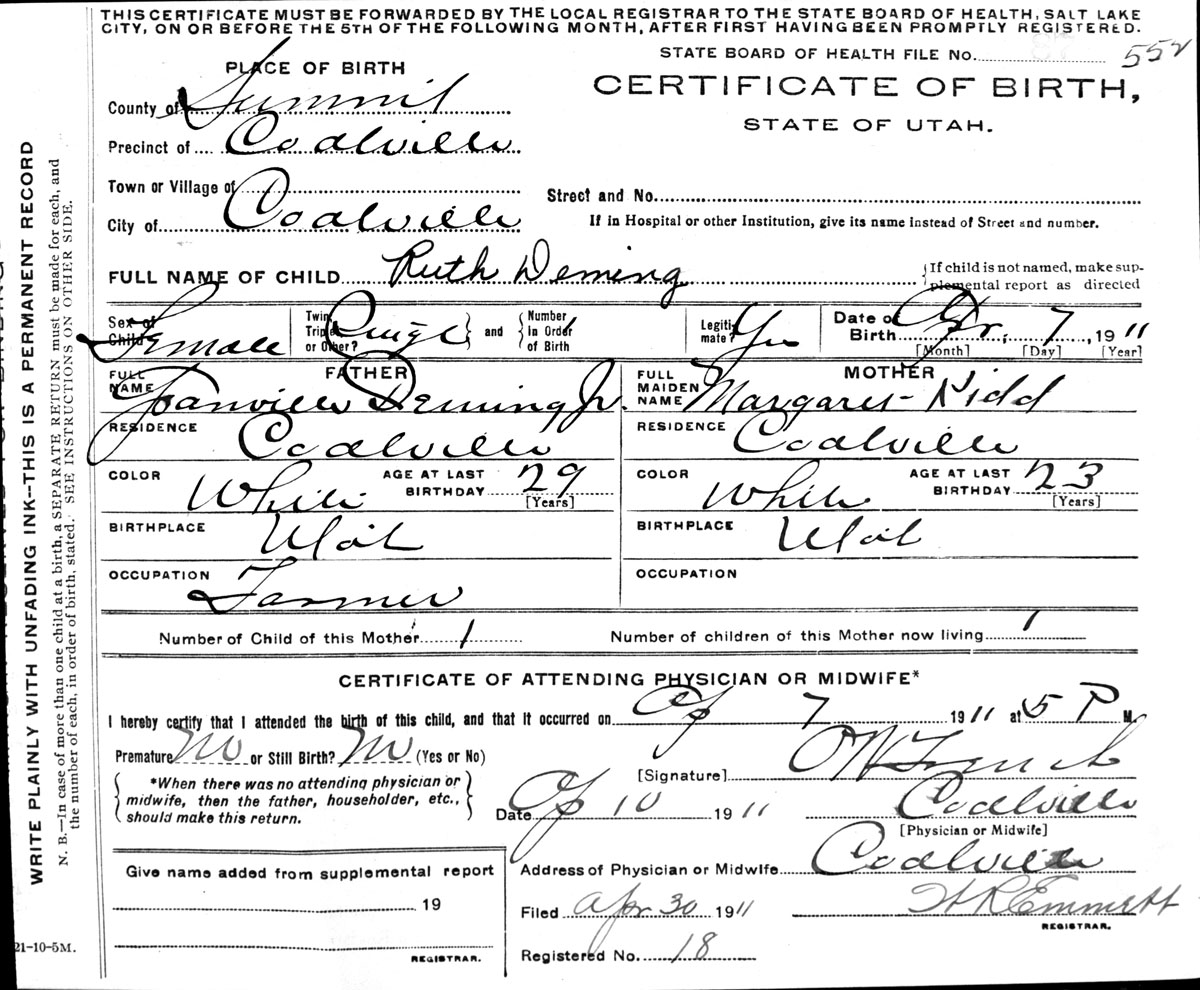 THIS CERTIFICATE MUST BE FORWARDED BY THE LOCAL REGISTRAR TO THE STATE BOARD OF HEALTH, SALT LAKE
CITY, ON OR BEFORE THE 5TH OF THE FOLLOWING MONTH, AFTER FIRST HAVING BEEN PROMPTLY REGISTERED.
STATE BOARD OF HEALTH FILE No. 552
PLACE OF BIRTH
CERTIFICATE OF BIRTH,
STATE OF UTAH.
County of Summit
Precinct of Coalville
Town or Village of
Street and No.
City of Coalville
If in Hospital or other Institution, give its name instead of Street and number.
FULL NAME OF CHILD Ruth Deming
If child is not named, make sup-
plemental report as directed
Sex of Child Female
Twin, Triplet or Other? and Number in Order of Birth
Legitimate? Yes
Date of Birth Apr. 7, 1911
[Month] [Day] [Year]
FATHER
FULL NAME Deming Jr.
RESIDENCE Coalville
COLOR White AGE AT LAST BIRTHDAY 29 [Years]
BIRTHPLACE Utah
OCCUPATION Farmer
MOTHER
FULL MAIDEN NAME Margaret Kidd
RESIDENCE Coalville
COLOR White AGE AT LAST BIRTHDAY 23 [Years]
BIRTHPLACE Utah
OCCUPATION
Number of Child of this Mother 1 Number of children of this Mother now living 1
CERTIFICATE OF ATTENDING PHYSICIAN OR MIDWIFE*
I hereby certify that I attended the birth of this child, and that it occurred on Ap 7 1911 at 5 P M.
Premature No or Still Birth? No (Yes or No)
*When there was no attending physician or
midwife, then the father, householder, etc.,
should make this return.
[Signature] French
Date Ap 10 1911 Coalville
[Physician or Midwife]
Address of Physician or Midwife Coalville
Give name added from supplemental report
19
REGISTRAR.
Filed Apr 30 1911 Emmett
REGISTRAR.
Registered No. 18
WRITE PLAINLY WITH UNFADING INK--THIS IS A PERMANENT RECORD
N. B.—In case of more than one child at a birth, a SEPARATE RETURN must be made for each, and
the number of each, in order of birth, stated. SEE INSTRUCTIONS ON OTHER SIDE.
21-10-5M.